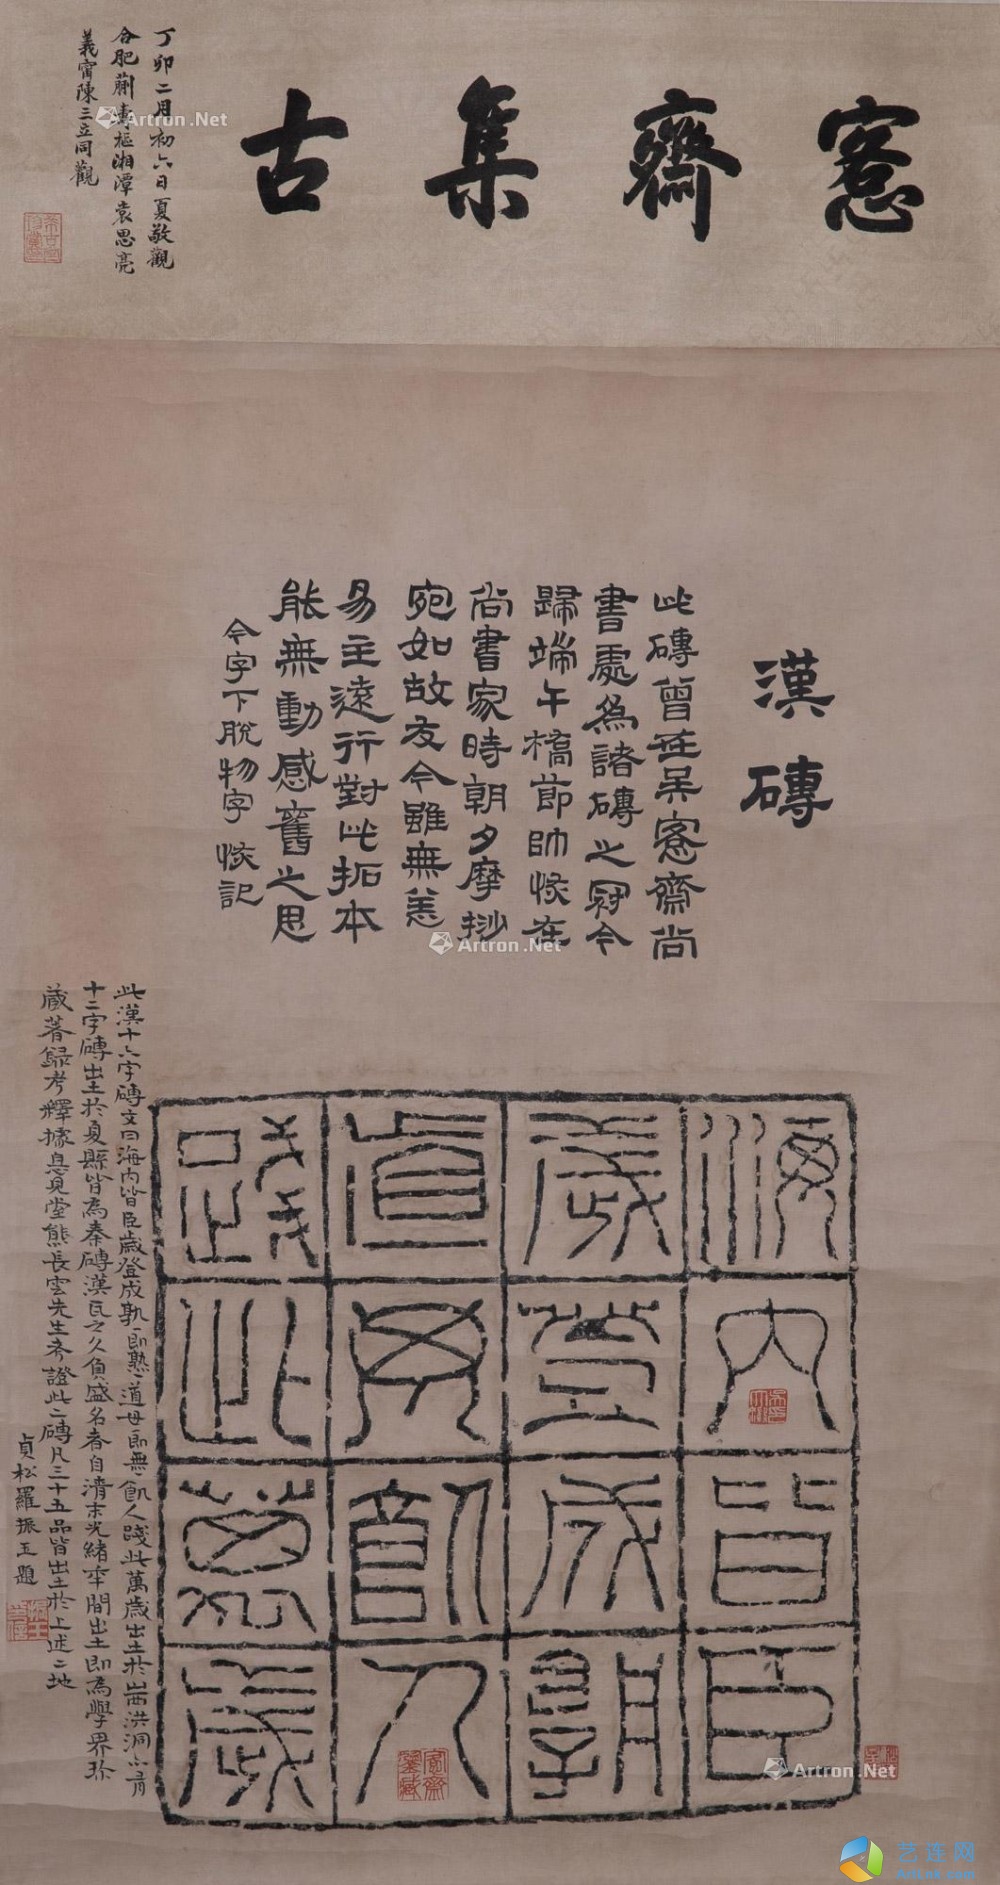 愙齋集古
丁卯二月初六日夏敬觀
合肥蒯壽樞湘潭袁思亮
義甯陳三立同觀
漢磚
此磚曾在吴愙齋尚
書處為諸磚之冠今
歸端午橋節帥惔在
尚書家時朝夕摩抄
宛如故友今雖無恙
易主遠行對此拓本
能無動感舊之思
今字下脫物字 惔記
海内皆臣
歲登成孰
道毋飢人
踐此萬歲
愙齋鑒藏
此漢十六字磚文曰海内皆臣歲登成孰即熟道毋即無飢人踐此萬歲出土於
十二字磚出土於夏縣皆為秦磚漢瓦之久負盛名者自清末光緒年間出土即為學界珍
藏著錄考釋據息見堂熊長雲先生考證此二磚凡三十五品皆出土於上述二地
貞松羅振玉題
Artron.Net
Artron.Net
Artron.Net
艺连网